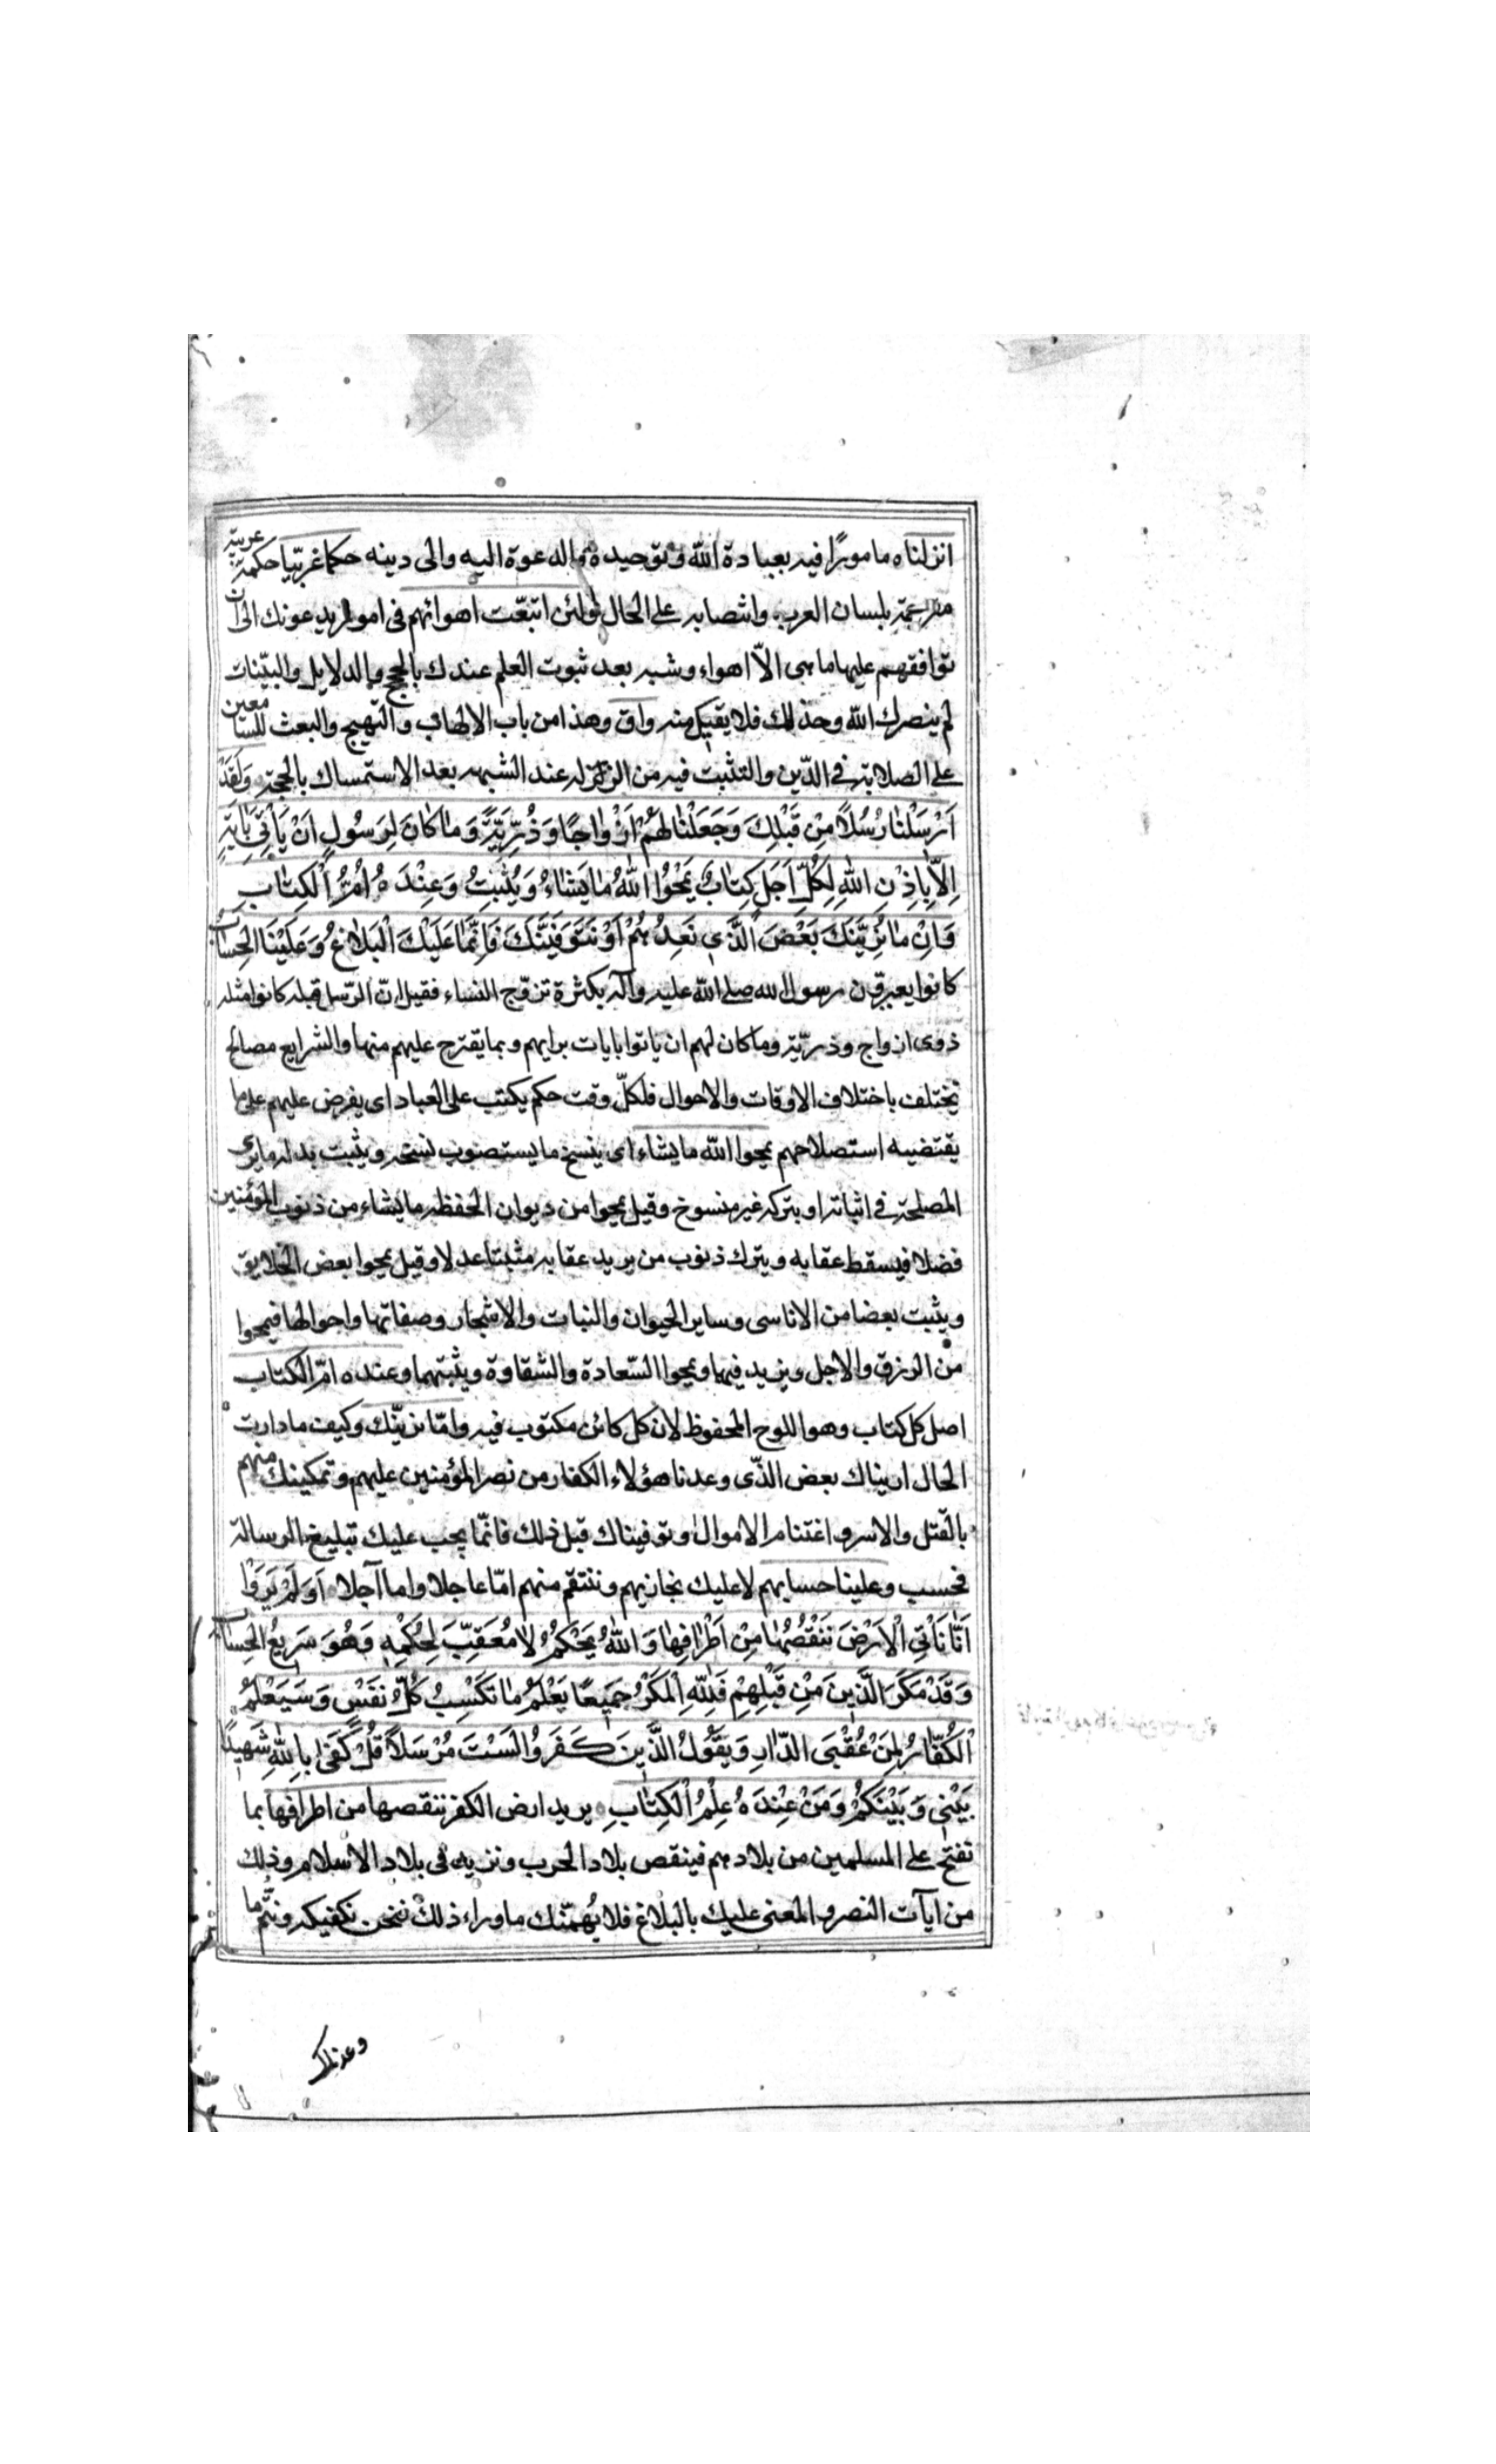 انزلناه مامورًا فيه بعبادة الله وتوحيده والدعوة اليه والى دينه حكما عربيّا حكمة عربيّة
مترجمة بلسان العرب وانتصابه على الحال ولئن اتبعّت اهوائهم فى امور يدعونك الى ان
توافقهم عليها ما هى الاّ اهواء وشبه بعد ثبوت العلم عندك بالحجج والدلايل والبيّنات
لم ينصرك الله وخذلك فلا يقيك منه واق وهذا من باب الالهاب والتهييج والبعث للسامعين
على الصلابة فى الدّين والتثبت فيه من الزلة عند الشبهه بعد الاستمساك بالحجة وَلَقَدْ
اَرْسَلْنا رُسُلًا مِنْ قَبْلِكَ وَجَعَلْنا لَهُمْ اَزْواجًا وَذُرِّيَّةً وَما كانَ لِرَسُولٍ اَنْ يَأْتِىَ بِآيَةٍ
اِلّا بِاِذْنِ اللهِ لِكُلِّ اَجَلٍ كِتابٌ يَمْحُوا اللهُ ما يَشاءُ وَيُثْبِتُ وَعِنْدَهُ اُمُّ الْكِتابِ
وَاِنْ ما نُرِيَنَّكَ بَعْضَ الَّذى نَعِدُهُمْ اَوْ نَتَوَفَّيَنَّكَ فَاِنَّما عَلَيْكَ الْبَلاغُ وَعَلَيْنَا الْحِسابُ
كانوا يعيرون رسول الله صلى الله عليه وآله بكثرة تزوّج النساء فقيل انّ الرّسل قبله كانوا مثله
ذوى ازواج وذريّة وما كان لهم ان ياتوا بايات برايهم وبما يقترح عليهم منها والشرايع مصالح
تختلف باختلاف الاوقات والاحوال فلكلّ وقت حكم يكتب على العباد اى يفرض عليهم على ما
يقتضيه استصلاحهم يمحوا الله ما يشاء اى ينسخ ما يستصوب نسخه ويثبت بدله ما يرى
المصلحة فى اثباته او يتركه غير منسوخ وقيل يمحوا من ديوان الحفظه ما يشاء من ذنوب المؤمنين
فضلا فيسقط عقابه ويترك ذنوب من يريد عقابه مثبتا عدلا وقيل يمحوا بعض الخلايق
ويثبت بعضا من الاناسى وساير الحيوان والنبات والاشجار وصفاتها واحوالها فيمحوا
من الرزق والاجل ويزيد فيهما ويمحوا السّعادة والشقاوة ويثبتهما وعنده امّ الكتاب
اصل كل كتاب وهو اللوح المحفوظ لان كل كائن مكتوب فيه وامّا نرينّك وكيف ما دارت
الحال اريناك بعض الذّى وعدنا هؤلاء الكفار من نصر المؤمنين عليهم وتمكينك منهم
بالقتل والاسر واغتنام الاموال وتوفيناك قبل ذلك فانّما يجب عليك تبليغ الرسالة
فحسب وعلينا حسابهم لا عليك نجازيهم وننتقم منهم امّا عاجلا واما آجلا اَوَلَمْ يَرَوْا
اَنّا نَأْتِى الْاَرْضَ نَنْقُصُها مِنْ اَطْرافِها وَاللهُ يَحْكُمُ لا مُعَقِّبَ لِحُكْمِهِ وَهُوَ سَريعُ الْحِسابِ
وَقَدْ مَكَرَ الَّذينَ مِنْ قَبْلِهِمْ فَلِلّهِ الْمَكْرُ جَميعًا يَعْلَمُ ما تَكْسِبُ كُلُّ نَفْسٍ وَسَيَعْلَمُ
الْكُفّارُ لِمَنْ عُقْبَى الدّارِ وَيَقُولُ الَّذينَ كَفَرُوا لَسْتَ مُرْسَلًا قُلْ كَفى بِاللهِ شَهيدًا
بَيْنى وَبَيْنَكُمْ وَمَنْ عِنْدَهُ عِلْمُ الْكِتابِ يريد ارض الكفر ننقصها من اطرافها بما
نفتح على المسلمين من بلادهم فينقص بلاد الحرب ونزيد فى بلاد الاسلام وذلك
من ايآت النصر والمعنى عليك بالبلاغ فلا يُهمنّك ما وراء ذلك فنحن نكفيكه ونتّم ما
وعدناك